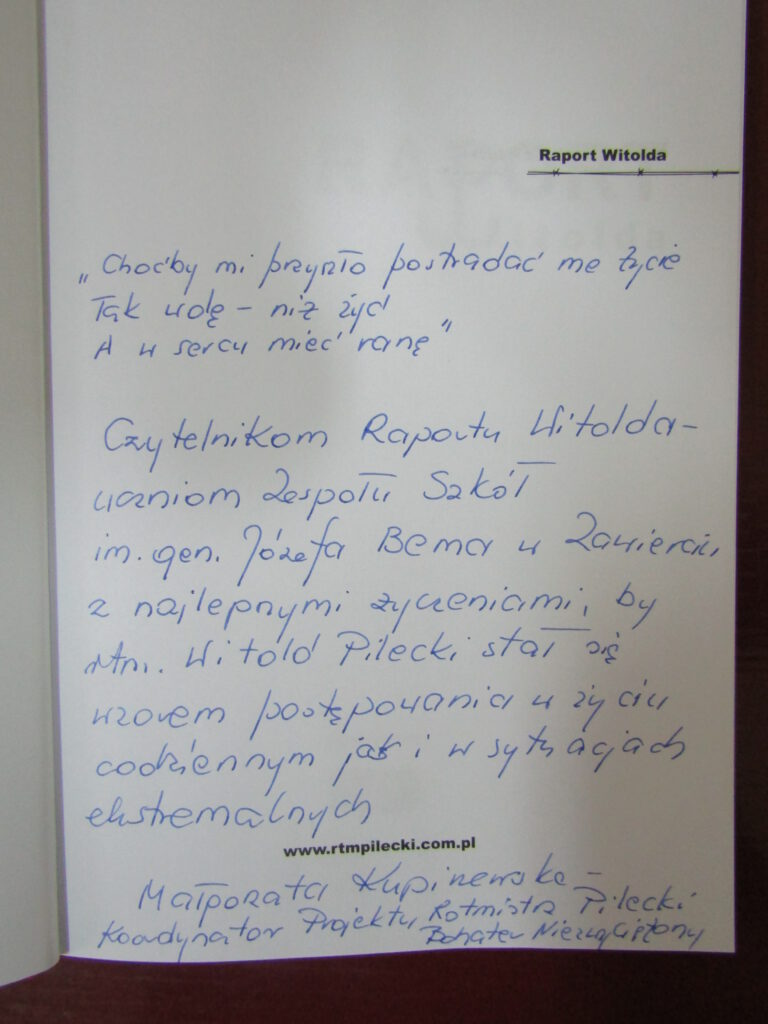 Raport Witolda
„Choćby mi przyszło postradać me życie
Tak wolę – niż żyć
A w sercu mieć ranę"
Czytelnikom Raportu Witolda –
uczniom Zespołu Szkół
im. gen. Józefa Bema w Zawierciu
z najlepszymi życzeniami, by
rtm. Witold Pilecki stał się
wzorem postępowania w życiu
codziennym jak i w sytuacjach
ekstremalnych
www.rtmpilecki.com.pl
Małgorzata Kupiszewska –
Koordynator Projektu Rotmistrz Pilecki
Bohater Niezwyciężony